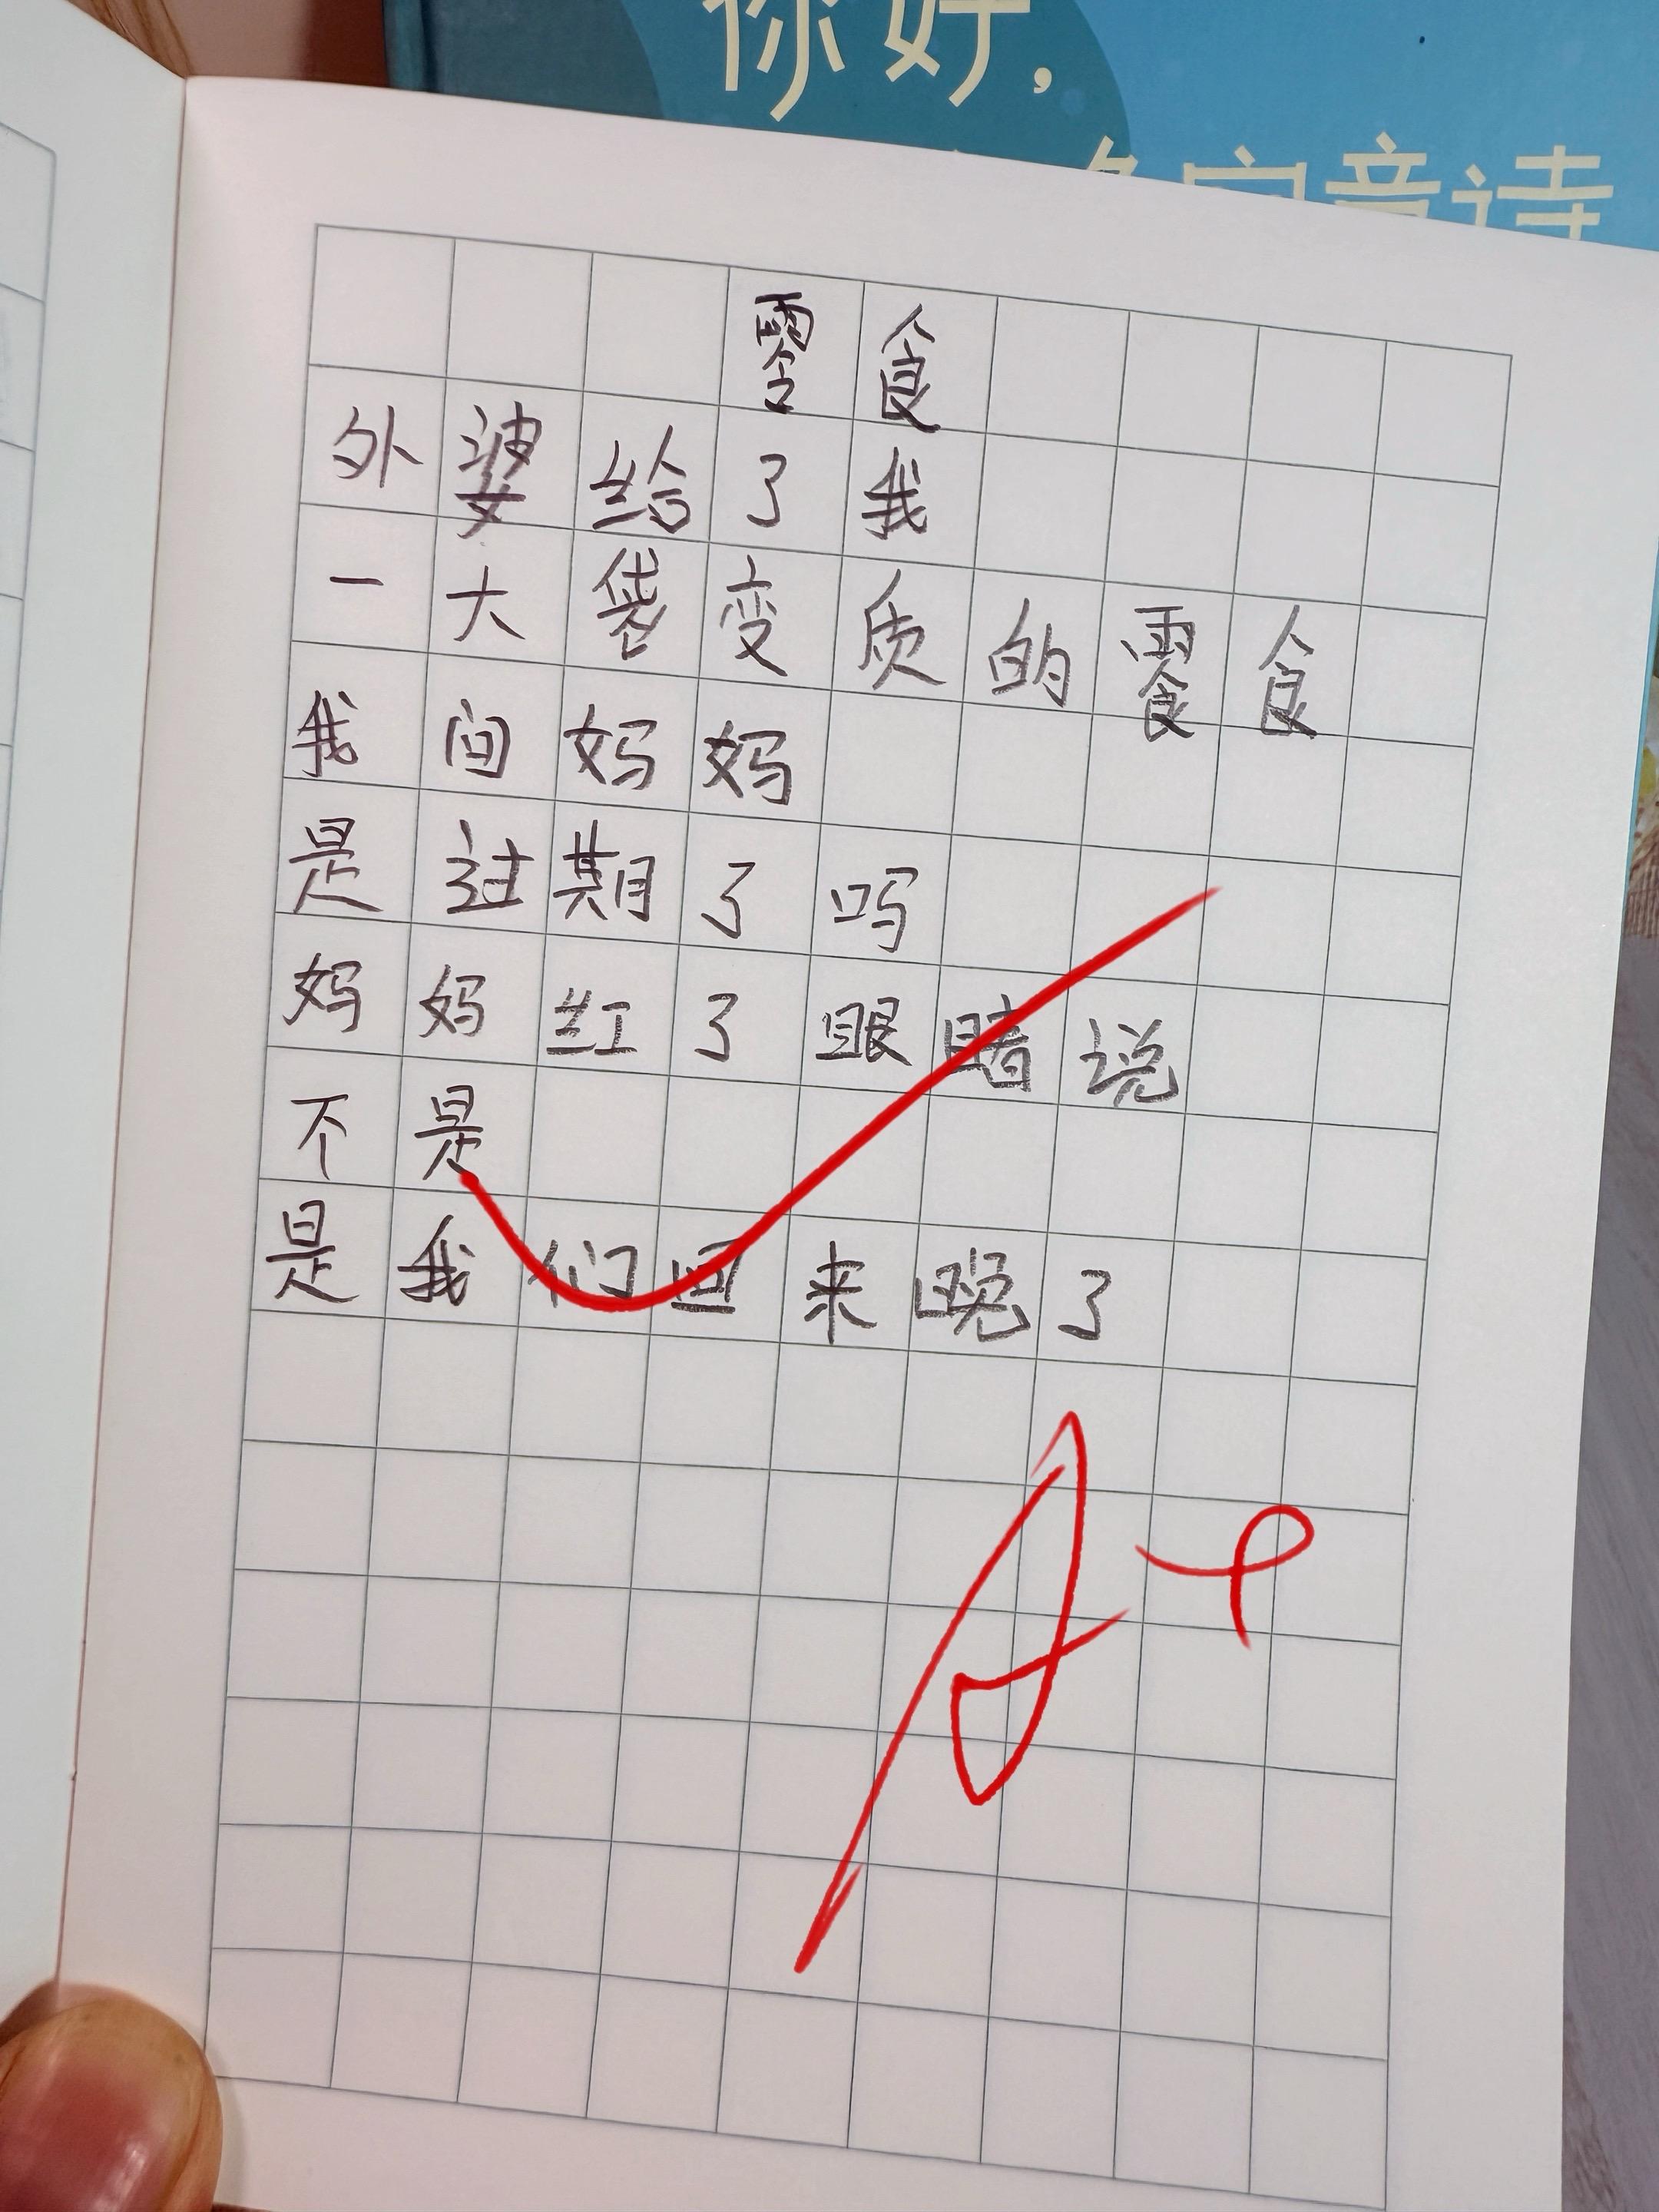 你好,
童诗
零食
外婆给了我
一大袋变质的零食
我问妈妈
是过期了吗
妈妈红了眼睛说
不是
是我们回来晚了
A+